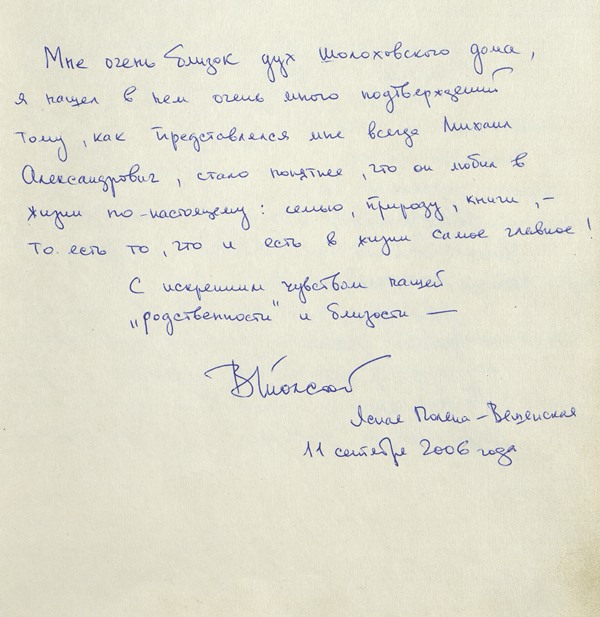 Мне очень близок дух шолоховского дома,
я нашел в нем очень много подтверждений
тому, как представлялся мне всегда Михаил
Александрович, стало понятнее, что он любил в
жизни по-настоящему: семью, природу, книги, –
то есть то, что и есть в жизни самое главное!
С искренним чувством нашей
„родственности“ и близости —
ВТолстой
Ясная Поляна – Вешенская
11 сентября 2006 года